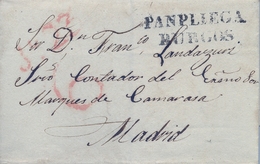 PANPLIEGA
BURGOS
Sor Dn Franco Landazuri
Contador del Exmo Sor
Marques de Camarasa
Madrid